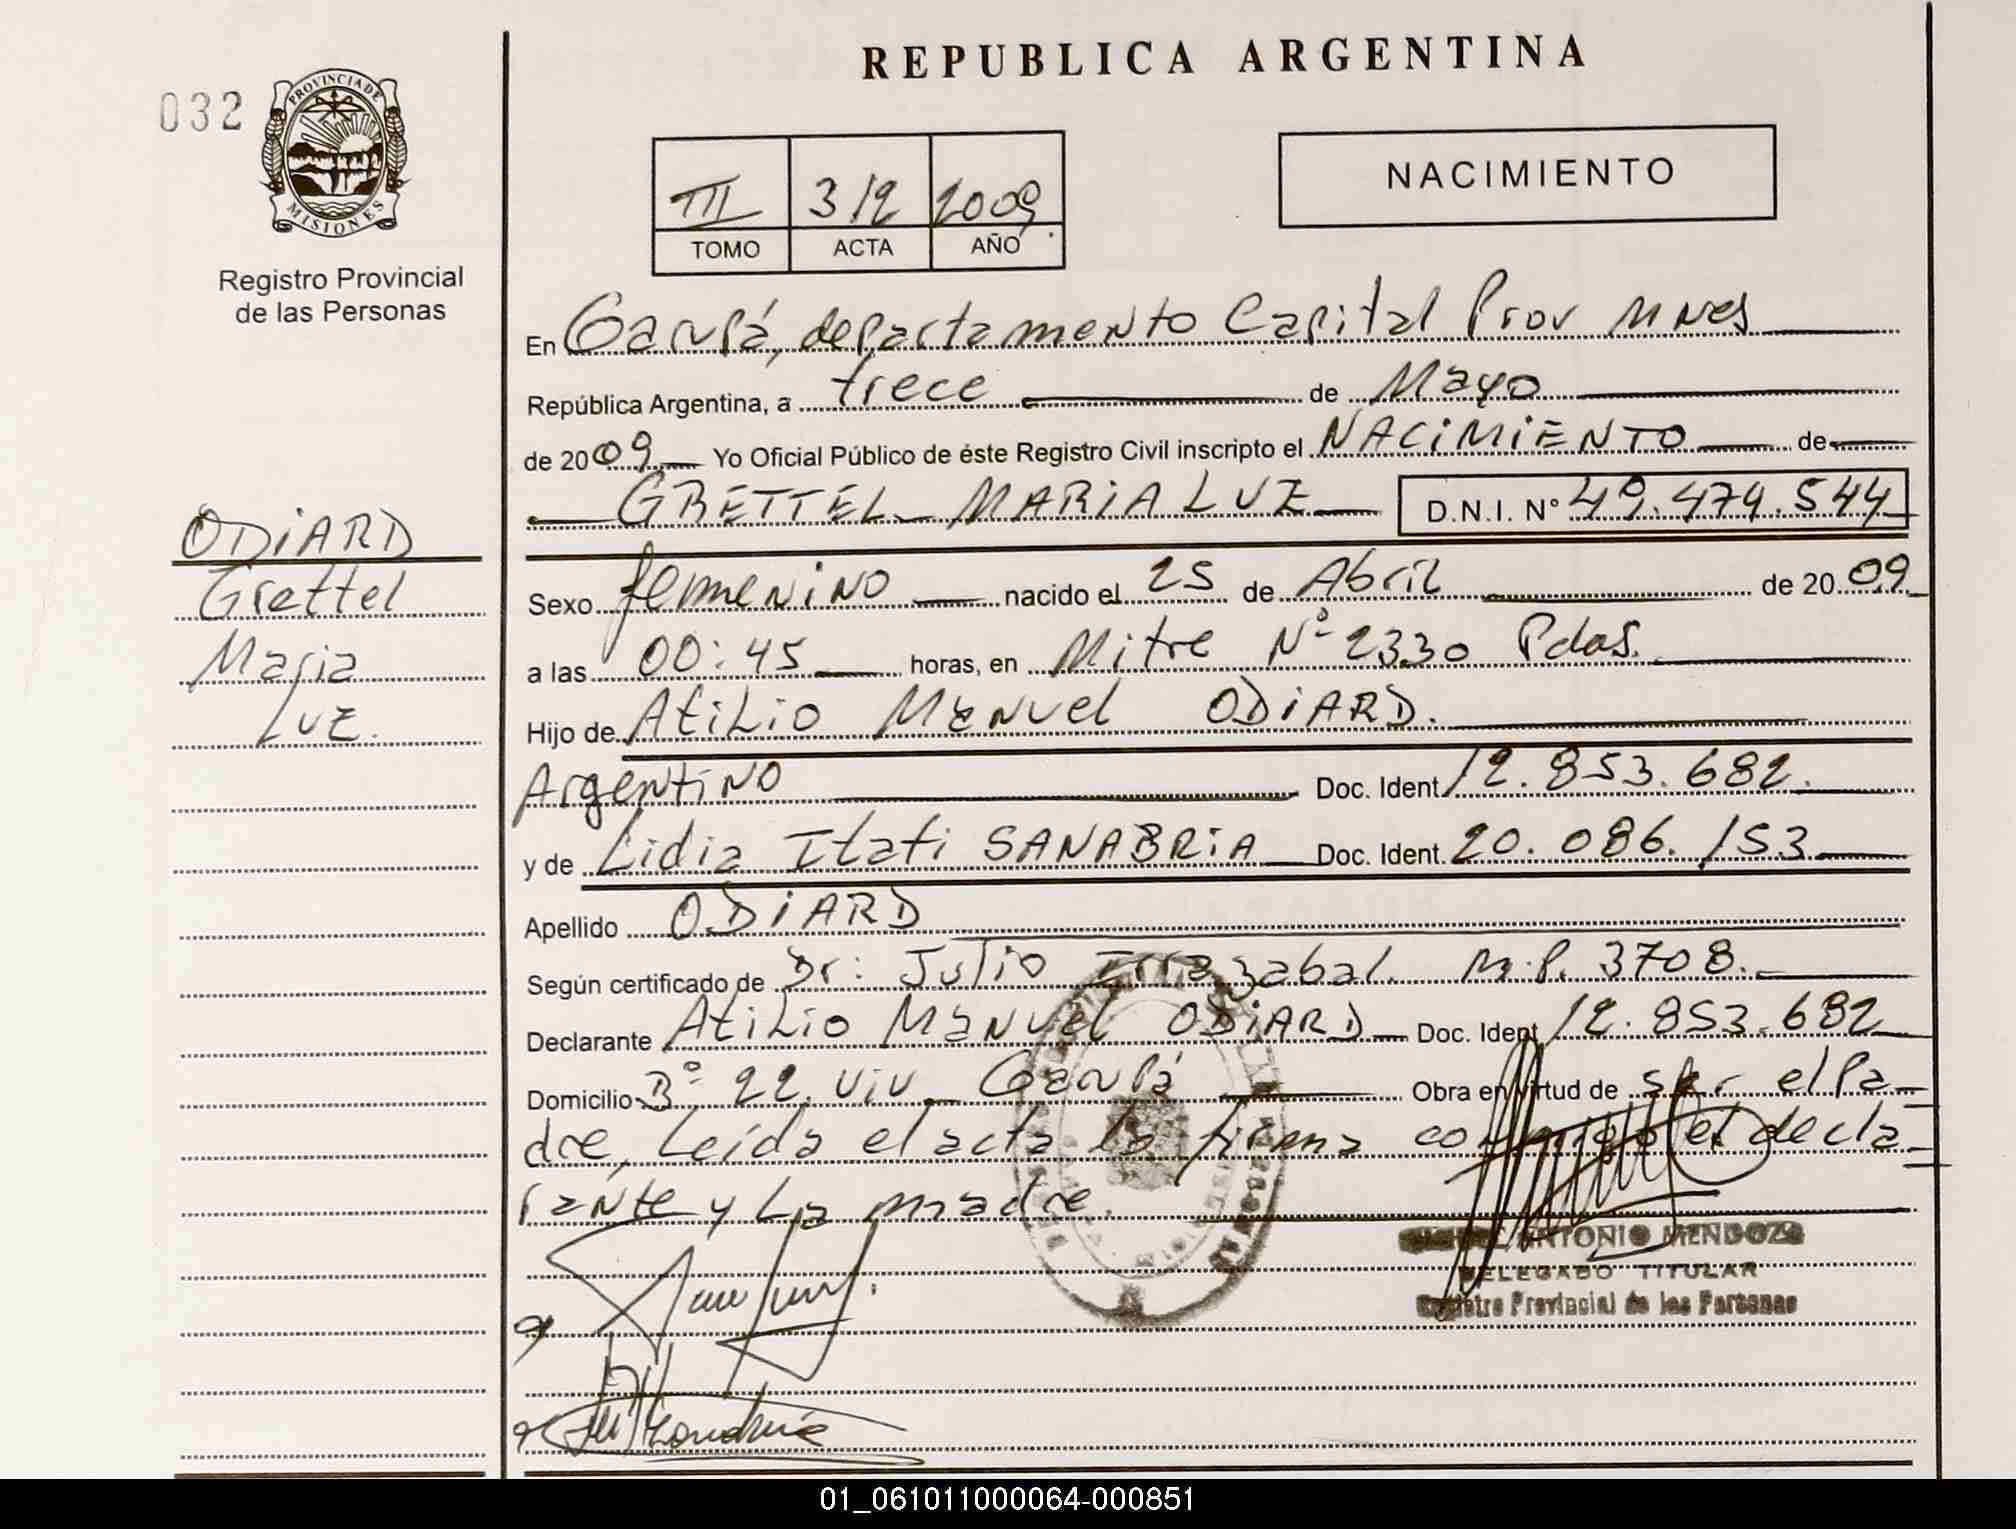 REPUBLICA ARGENTINA
032
PROVINCIA DE MISIONES
Registro Provincial
de las Personas
III 312 2009
TOMO ACTA AÑO
NACIMIENTO
En Garupá, departamento Capital Prov Mnes
República Argentina, a trece de Mayo
de 2009 Yo Oficial Público de éste Registro Civil inscripto el NACIMIENTO de
GRETTEL MARIA LUZ D.N.I. Nº 49.474.544
ODIARD
Grettel
Maria
Luz.
Sexo femenino nacido el 25 de Abril de 2009
a las 00:45 horas, en Mitre Nº 2330 Pdas.
Hijo de Atilio Manuel ODIARD.
Argentino Doc. Ident. 12.853.682.
y de Lidia Itati SANABRIA Doc. Ident. 20.086.153
Apellido ODIARD
Según certificado de Dr: Julio Irrazabal. M.P. 3708.
Declarante Atilio Manuel ODIARD Doc. Ident. 12.853.682
Domicilio Bº 22 viv. Garupá Obra en virtud de ser el Pa-
dre, Leída el acta la firma conmigo el decla
rante y la madre.
ANTONIO MENDOZA
DELEGADO TITULAR
Registro Provincial de las Personas
01_061011000064-000851